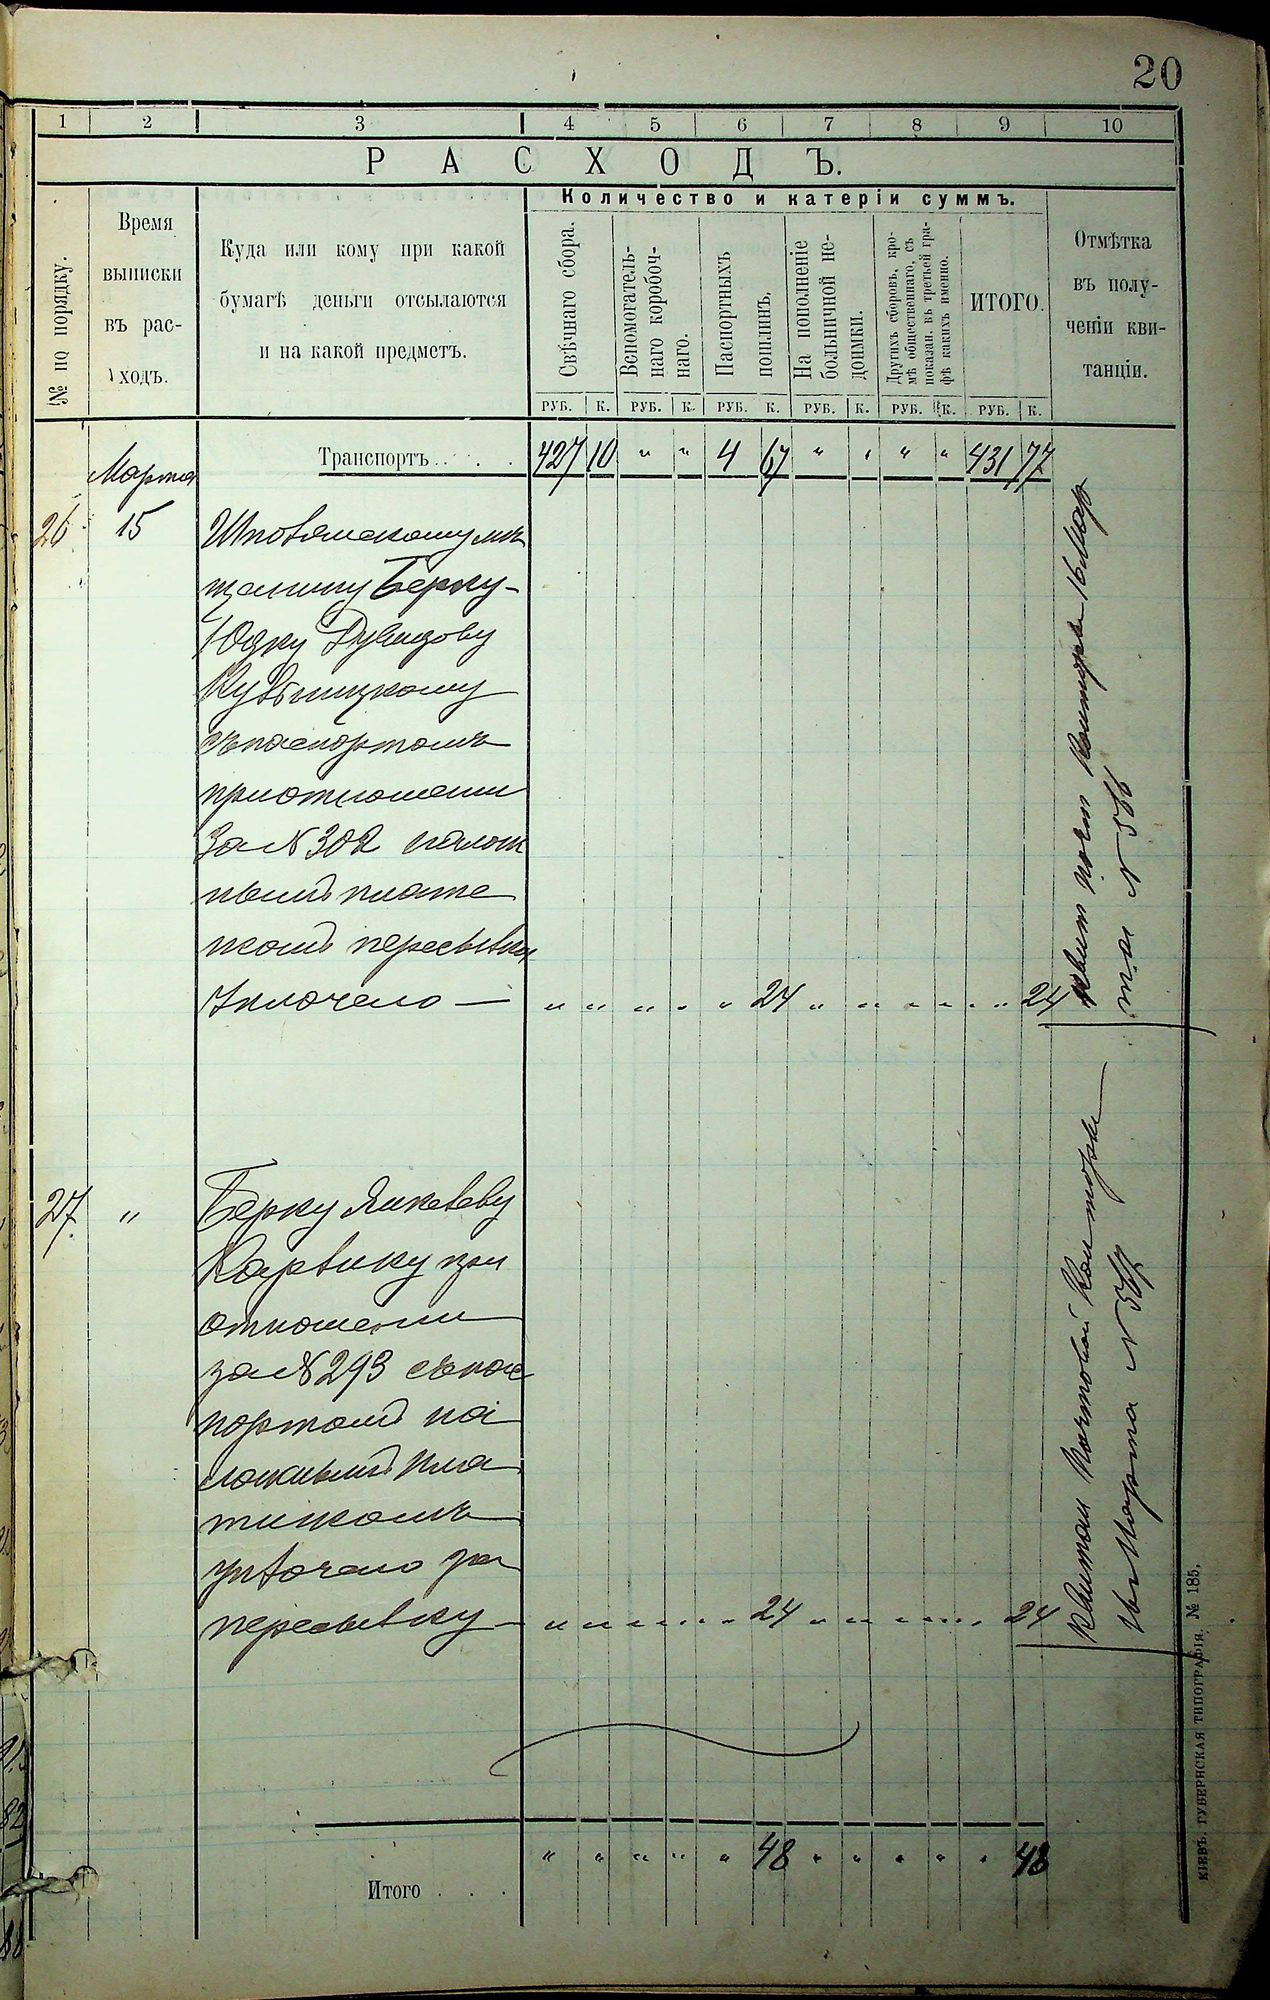 20
1 2 3 4 5 6 7 8 9 10
РАСХОДЪ.
№ по порядку.
Время
выписки
въ рас-
ходъ.
Куда или кому при какой
бумагѣ деньги отсылаются
и на какой предметъ.
Количество и катеріи суммъ.
Свѣчнаго сбора.
Вспомогатель-
наго коробоч-
наго.
Паспортныхъ
пошлинъ.
На пополненіе
больничной не-
доимки.
Другихъ сборовъ, кро-
мѣ общественнаго, съ
показан. въ третьей гра-
фѣ какихъ именно.
ИТОГО.
Отмѣтка
въ полу-
ченіи кви-
танціи.
РУБ. К. РУБ. К. РУБ. К. РУБ. К. РУБ. К. РУБ. К.
Транспортъ . . . . 427 10 „ „ 4 67 „ „ „ „ 431 77
Марта
26 15
мѣ
щанину Берку-
Юдку Дувидову
съ паспортомъ
при отношении
за № 302 налож
нымъ плате
жомъ пересылка
включено — „ „ „ „ „ 24 „ „ „ „ „ 24
Квит почт Конторы 16 Мар
та № 566
27 „ Берку Янкелеву
при
отношении
за № 293 съ пас
портомъ на
ложнымъ пла
тижомъ
за
пересылку — „ „ „ „ „ 24 „ „ „ „ „ 24
Квитан Почтовой Конторы
16 Марта № 567
Итого . . . . „ „ „ „ „ 48 „ „ „ „ „ 48
КІЕВЪ. ГУБЕРНСКАЯ ТИПОГРАФІЯ. № 185.